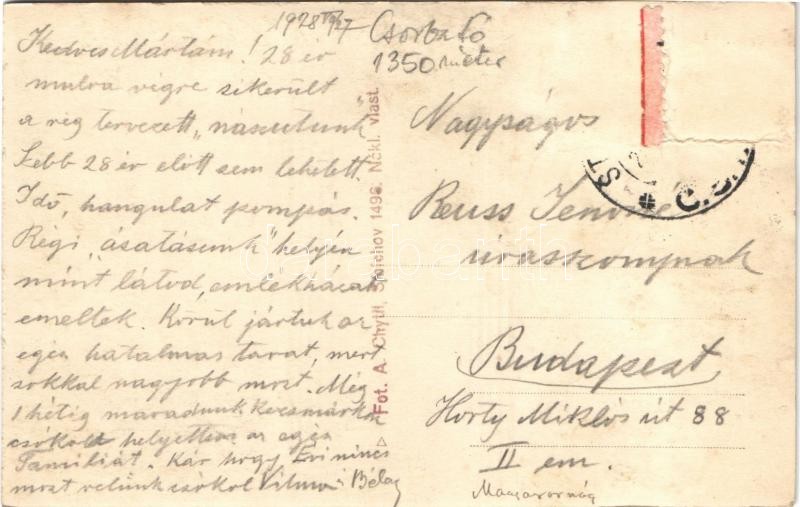 1928 VII/27 Csorba tó
1350 méter
Kedves Mártám! 28 év
mulva végre sikerült
a rég tervezett „nászutunk"
Szebb 28 év előtt sem lehetett.
Idő, hangulat pompás.
Régi „ásatásunk" helyén
mint látod, emlékházat
emeltek. Körül jártuk az
egész hatalmas tavat, mert
sokkal nagyobb most. Még
1 hétig maradunk.
csókold helyettem az egész
famíliát. Kár hogy Évi nincs
most velünk csókol Vilma Béla
Fot. A. Chytil, 1498. Nákl. vlast.
Nagyságos
Reuss Jenőné
úrasszonynak
Budapest
Horty Miklós út 88
II em.
Magyarország